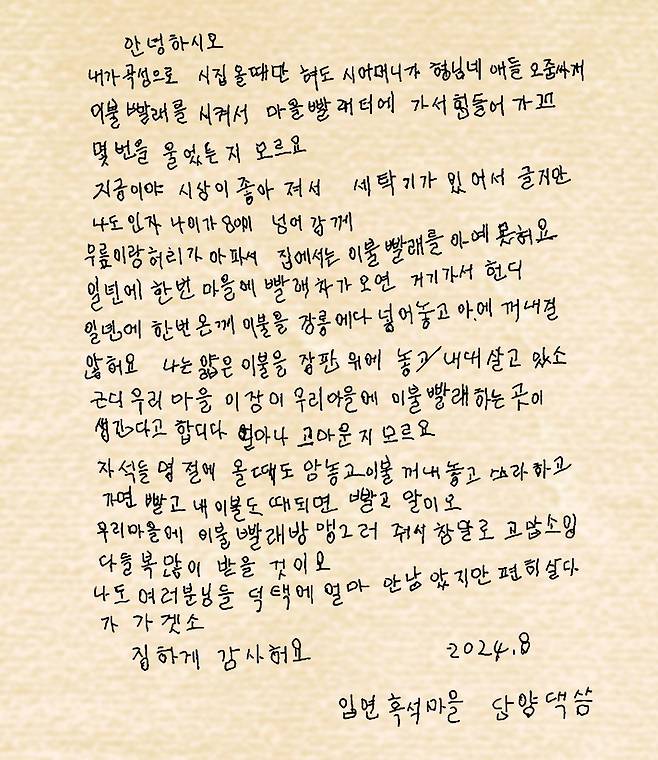 안녕하시오
내가 곡성으로 시집 올때만 혀도 시어머니가 형님네 애들 오줌싸개
이불 빨래를 시켜서 마을 빨래터에 가서 힘들어 가꼬
몇번을 울었는지 모르요
지금이야 시상이 좋아 져서 세탁기가 있어서 글지만
나도 인자 나이가 80이 넘어감께
무릎이랑 허리가 아파서 집에서는 이불 빨래를 아예 못혀요
일년에 한번 마을에 빨래차가 오면 거기가서 헌디
일년에 한번 온께 이불을 장롱에다 넣어놓고 아에 꺼내질
않혀요 나는 얇은 이불을 장판 위에 놓고 내내 살고 있소
근디 우리 마을 이장이 우리마을에 이불빨래하는 곳이
생긴다고 합디다 얼마나 고마운지 모르요
자석들 명절에 올때도 맘놓고 이불 꺼내 놓고 쓰라하고
가면 빨고 내 이불도 때되면 빨고 말이오
우리마을에 이불 빨래방 맹그러 줘서 참말로 고맙소잉
다들 복 많이 받을 것이오
나도 여러분님들 덕택에 얼마 안남았지만 편히 살다
가 가겟소
집하게 감사혀요 2024.8
입면 흑석마을 담양댁 씀